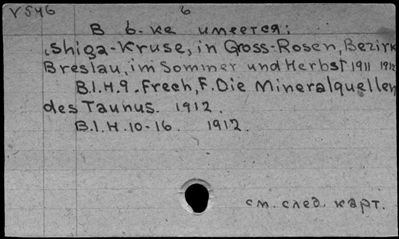 V546 6
В б-ке имеется:
Shiga-Kruse, in Gross-Rosen, Bezirk
Breslau, im Sommer und Herbst 1911 1912
B.I.H.9. Frech, F. Die Mineralquellen
des Taunus. 1912.
B.I.H.10-16. 1912.
см. след. карт.